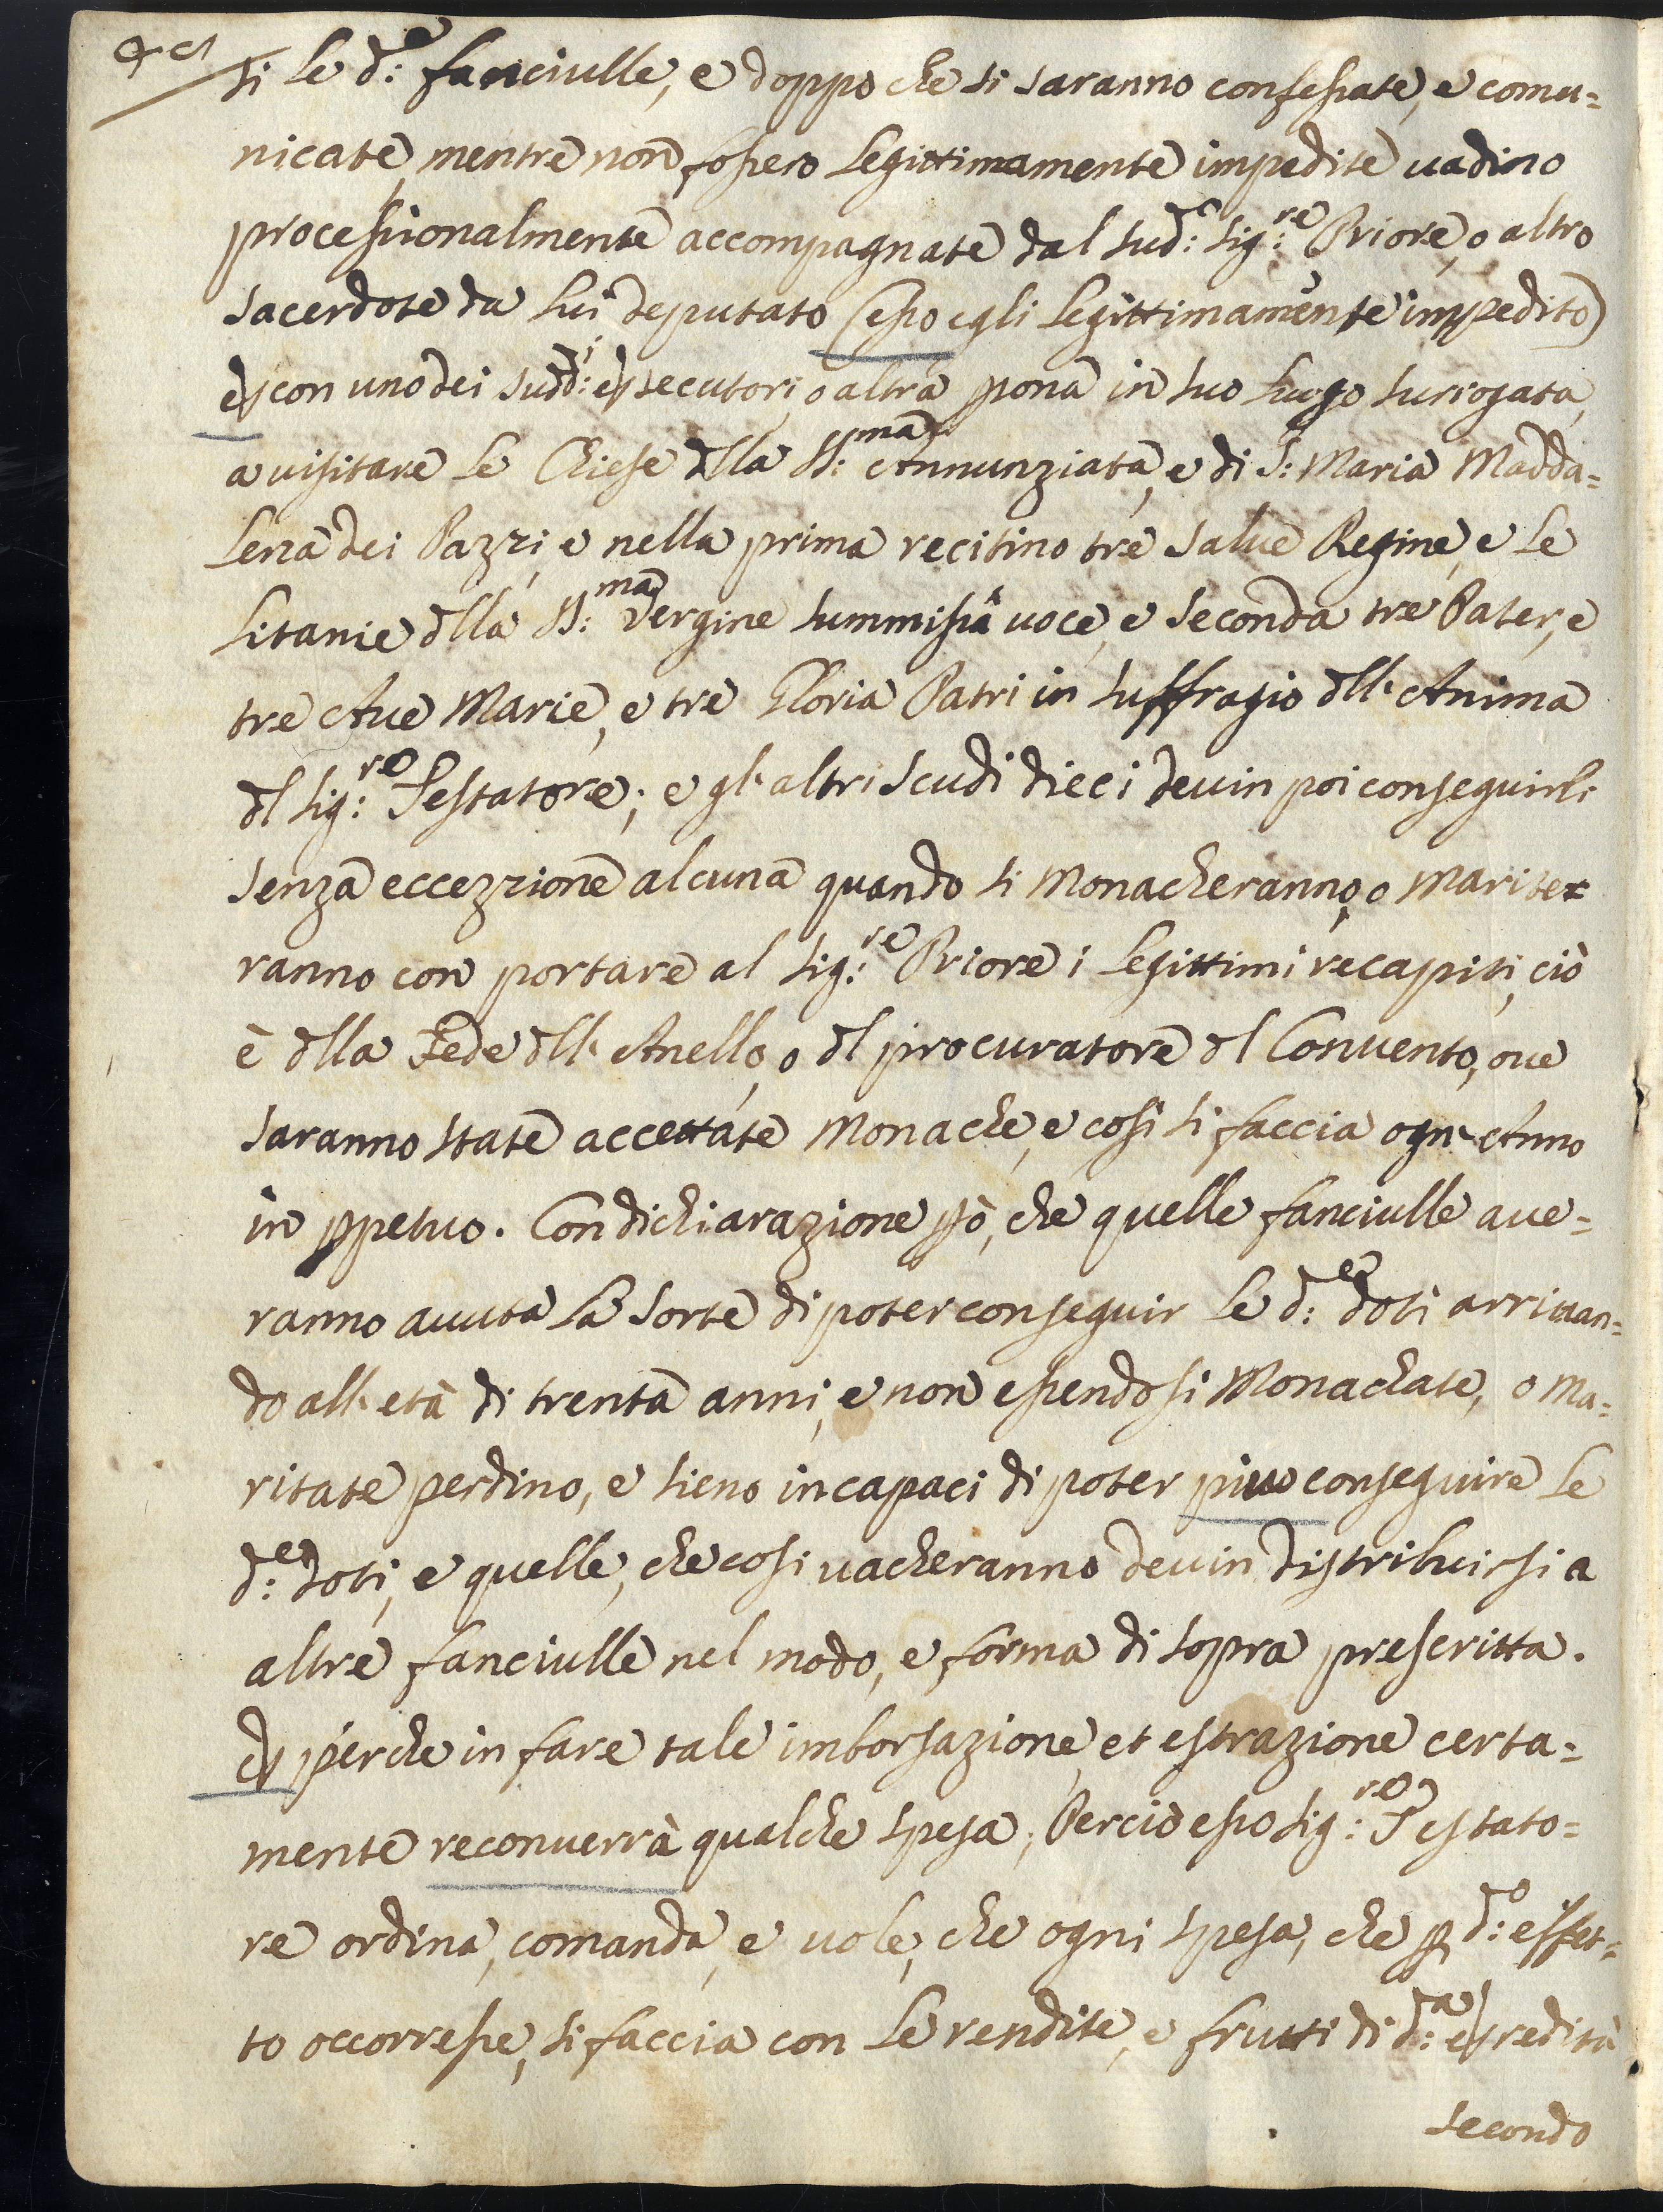 si le d:e fanciulle, e doppo che si saranno confessate, e comu=
nicate, mentre non fossero legittimamente impedite uadino
processionalmente accompagnate dal sud:o Sig:re Priore, o altro
sacerdote da lui deputato (esso egli legittimamente impedito)
e con uno dei sudd:i esecutori, o altra pona in suo luogo surrogata,
a uisitare le Chiese dlla SS:ma Annunziata, e di S: Maria Madda=
lena dei Pazzi, e nella prima recitino tre Salue Regine, e le
Litanie dlla SS:ma Vergine summissa uoce, e seconda tre Pater, e
tre Aue Marie, e tre Gloria Patri in suffragio dll'Anima
dl Sig:re Testatore; e gl'altri scudi dieci deuin poi conseguirli
senza eccezzione alcuna quando si Monacheranno, o Marite=
ranno con portare al Sig:re Priore i legittimi recapiti, ciò
è dlla Fede dll'Anello, o dl procuratore dl Conuento, oue
saranno state accettate Monache, e così si faccia ogn'Anno
in ppetuo. Con dichiarazione pò, che quelle fanciulle aue=
ranno auuta la sorte di poter conseguir le d:e doti arriuan=
do all'età di trenta anni, e non essendosi Monachate, o Ma=
ritate perdino, e sieno incapaci di poter piuo conseguire le
d:e doti, e quelle, che così uacheranno deuin distribuirsi a
altre fanciulle nel modo, e forma di sopra prescritta.
E perche in fare tale imborsazione, et estrazione certa=
mente reconuerrà qualche spesa; Perciò esso Sig:re Testato=
re ordina, comanda, e uole, che ogni spesa, che p d:o effet=
to occorresse, si faccia con le rendite, e frutti di d:a eredità
secondo